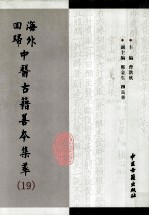 海外
回歸
中醫古籍善本集萃
(19)
主編 曹洪欣
副主編
中医古籍出版社